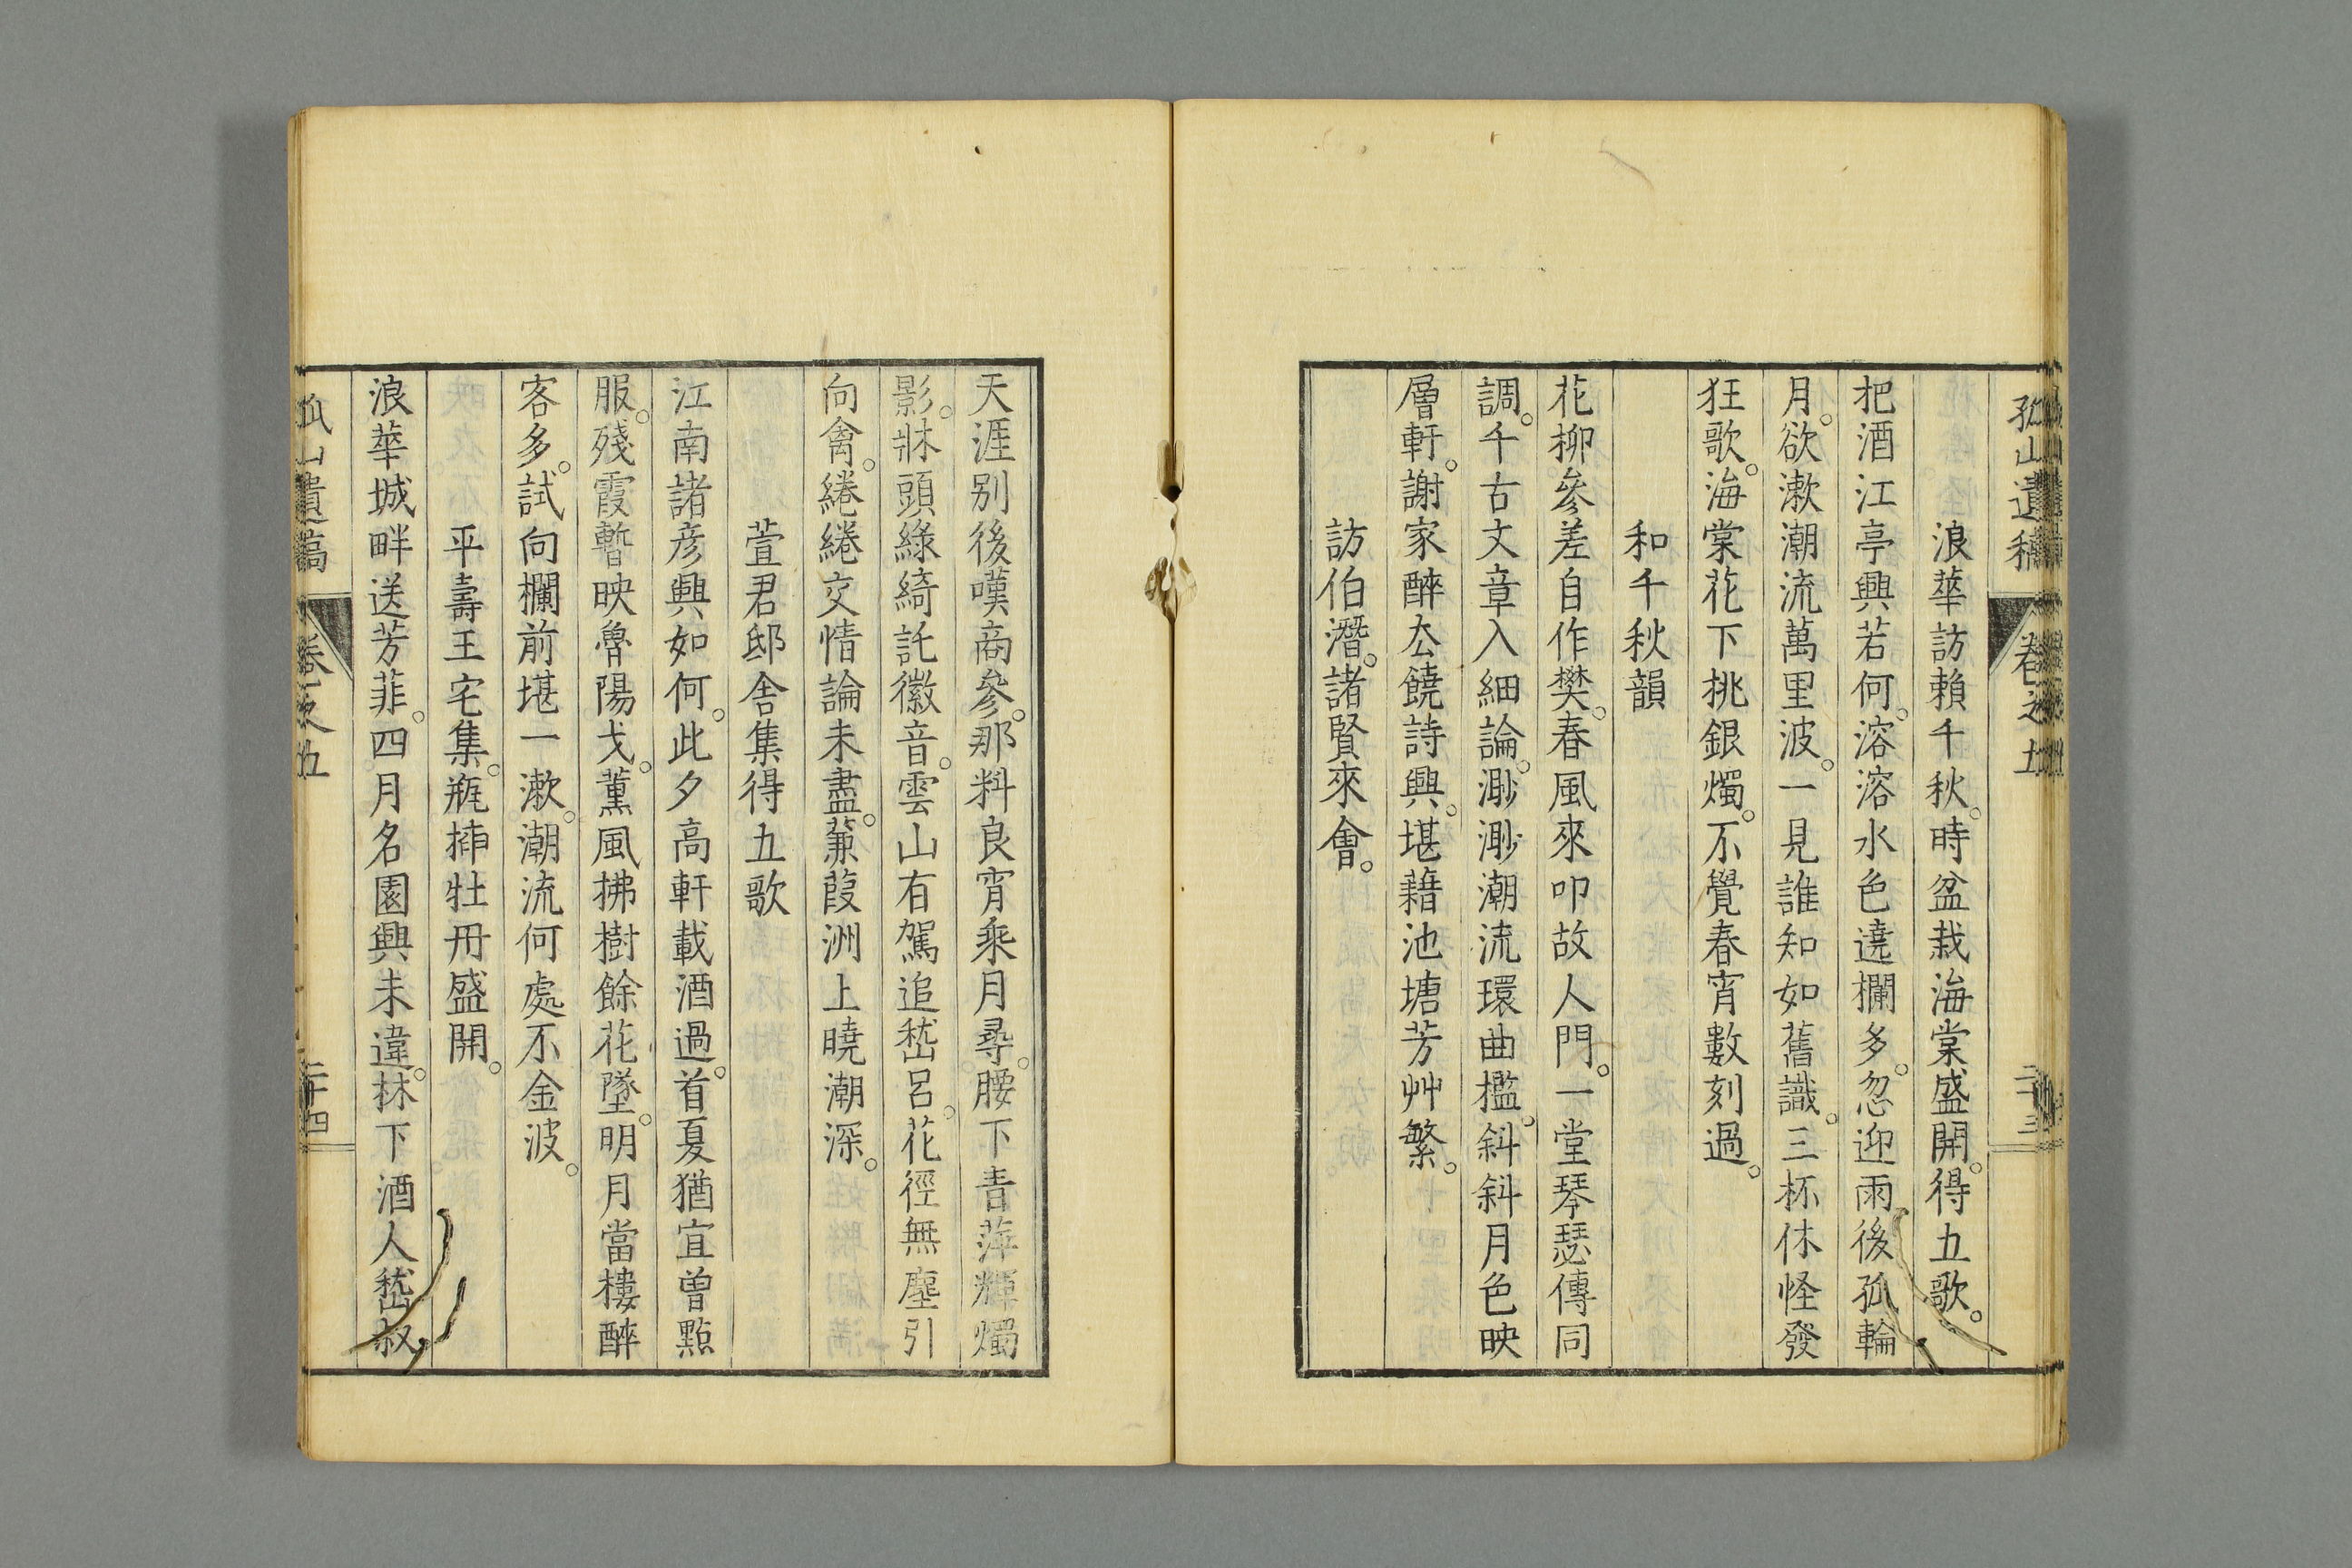 孤山遺稿 卷之五 二十三
浪華訪賴千秋。時盆栽海棠盛開。得五歌。
把酒江亭興若何。溶溶水色遶欄多。忽迎雨後孤輪
月。欲漱潮流萬里波。一見誰知如舊識。三杯休怪發
狂歌。海棠花下挑銀燭。不覺春宵數刻過。
和千秋韻
花柳參差自作樊。春風來叩故人門。一堂琴瑟傳同
調。千古文章入細論。渺渺潮流環曲檻。斜斜月色映
層軒。謝家醉厺饒詩興。堪藉池塘芳艸繁。
訪伯潛。諸賢來會。
天涯別後嘆商參。那料良宵乘月尋。腰下青萍輝燭
影。牀頭綠綺託徽音。雲山有駕追嵇呂。花徑無塵引
向禽。綣綣交情論未盡。蒹葭洲上曉潮深。
萱君邸舍集得五歌
江南諸彥興如何。此夕高軒載酒過。首夏猶宜曾點
服。殘霞暫映魯陽戈。薰風拂樹餘花墜。明月當樓醉
客多。試向欄前堪一漱。潮流何處不金波。
平壽王宅集。瓶揷牡丹盛開。
浪華城畔送芳菲。四月名園興未違。林下酒人嵇叔
孤山遺稿 卷之五 二十四